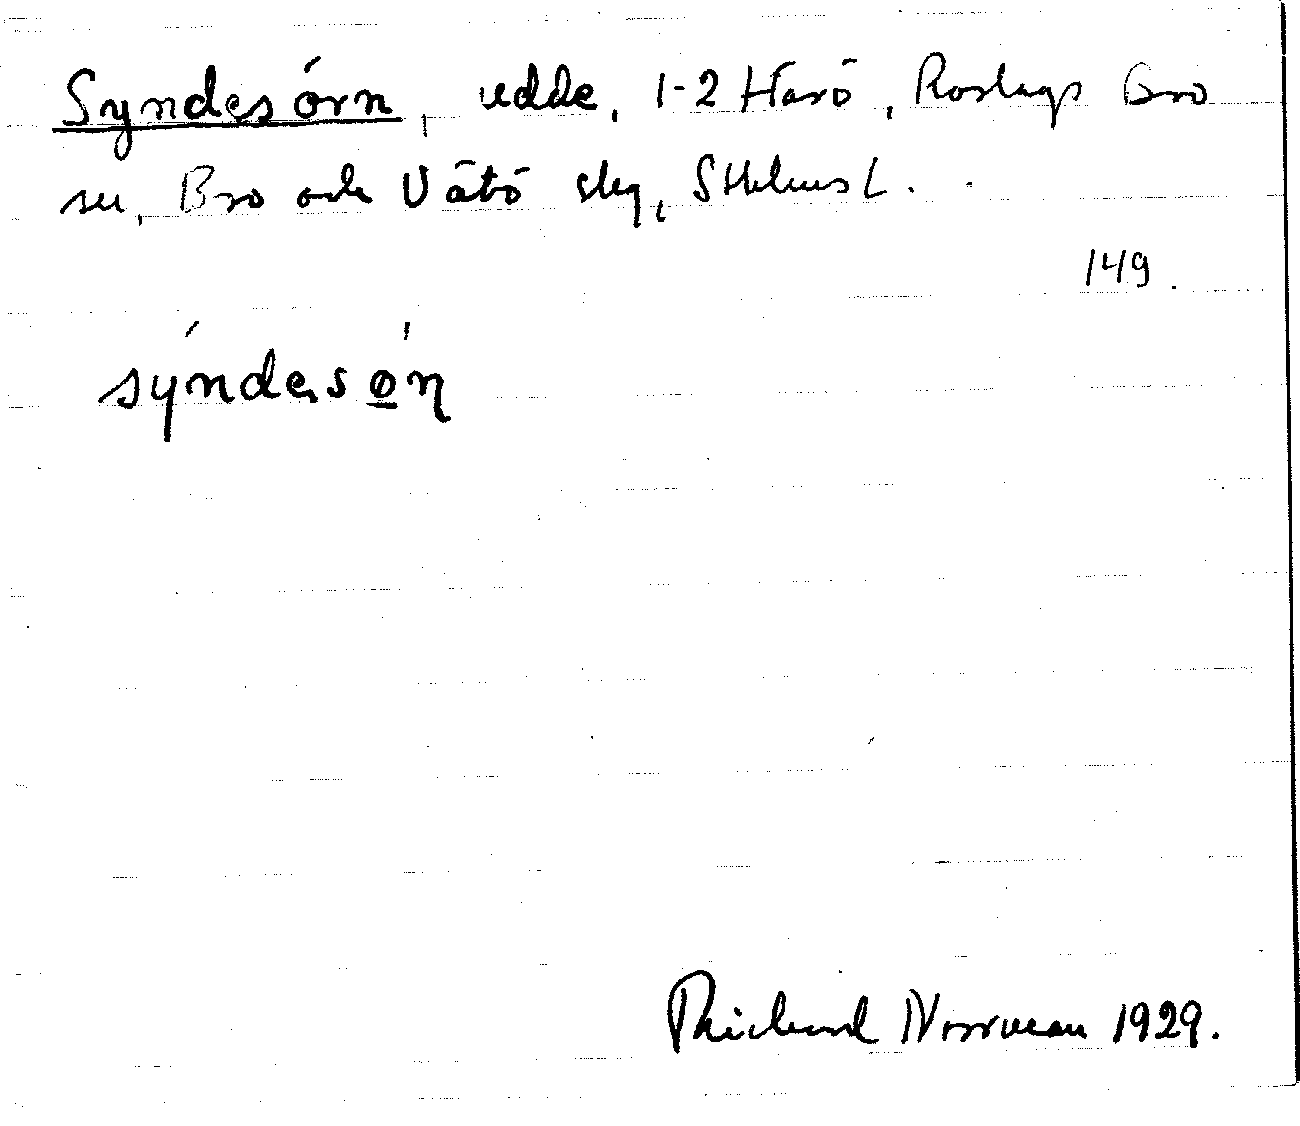 Syndesörn, udde, 1-2 Harö, Roslags Bro
sn, Bro och Vätö slg, Sthlms L.
149.
sýndesǿn
Richard Norrman 1929.